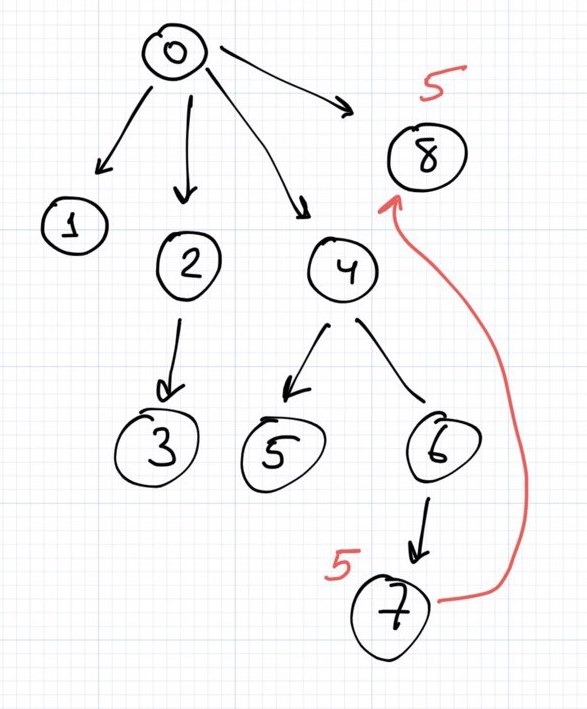 0
5
8
1
2
4
3
5
6
5
7